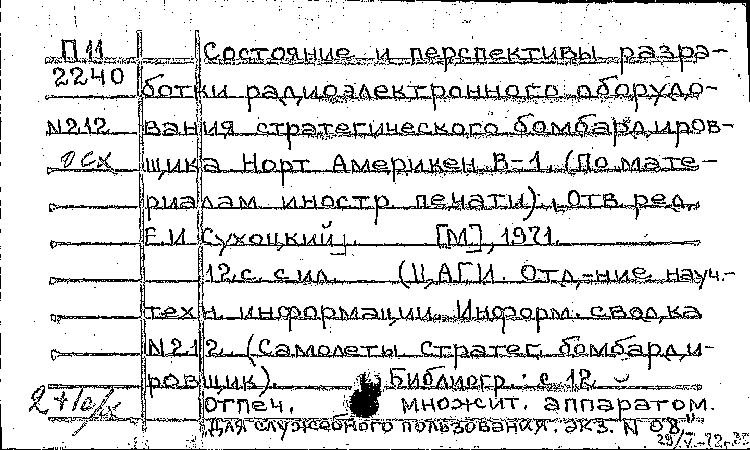 П11 Состояние и перспективы разра-
2240 ботки радиоэлектронного оборудо-
N212 вания стратегического бомбардиров-
осх щика Норт Америкен В-1. (По мате-
риалам иностр. печати). [Отв. ред.
Е.И. Сухоцкий]. [М], 1971.
12 с. с ил. (ЦАГИ. Отд-ние науч.-
техн. информации. Информ. сводка
N212. (Самолеты стратег. бомбарди-
ровщик). Библиогр.: с 12.
Отпеч. множит. аппаратом.
"Для служебного пользования. экз. N 08."